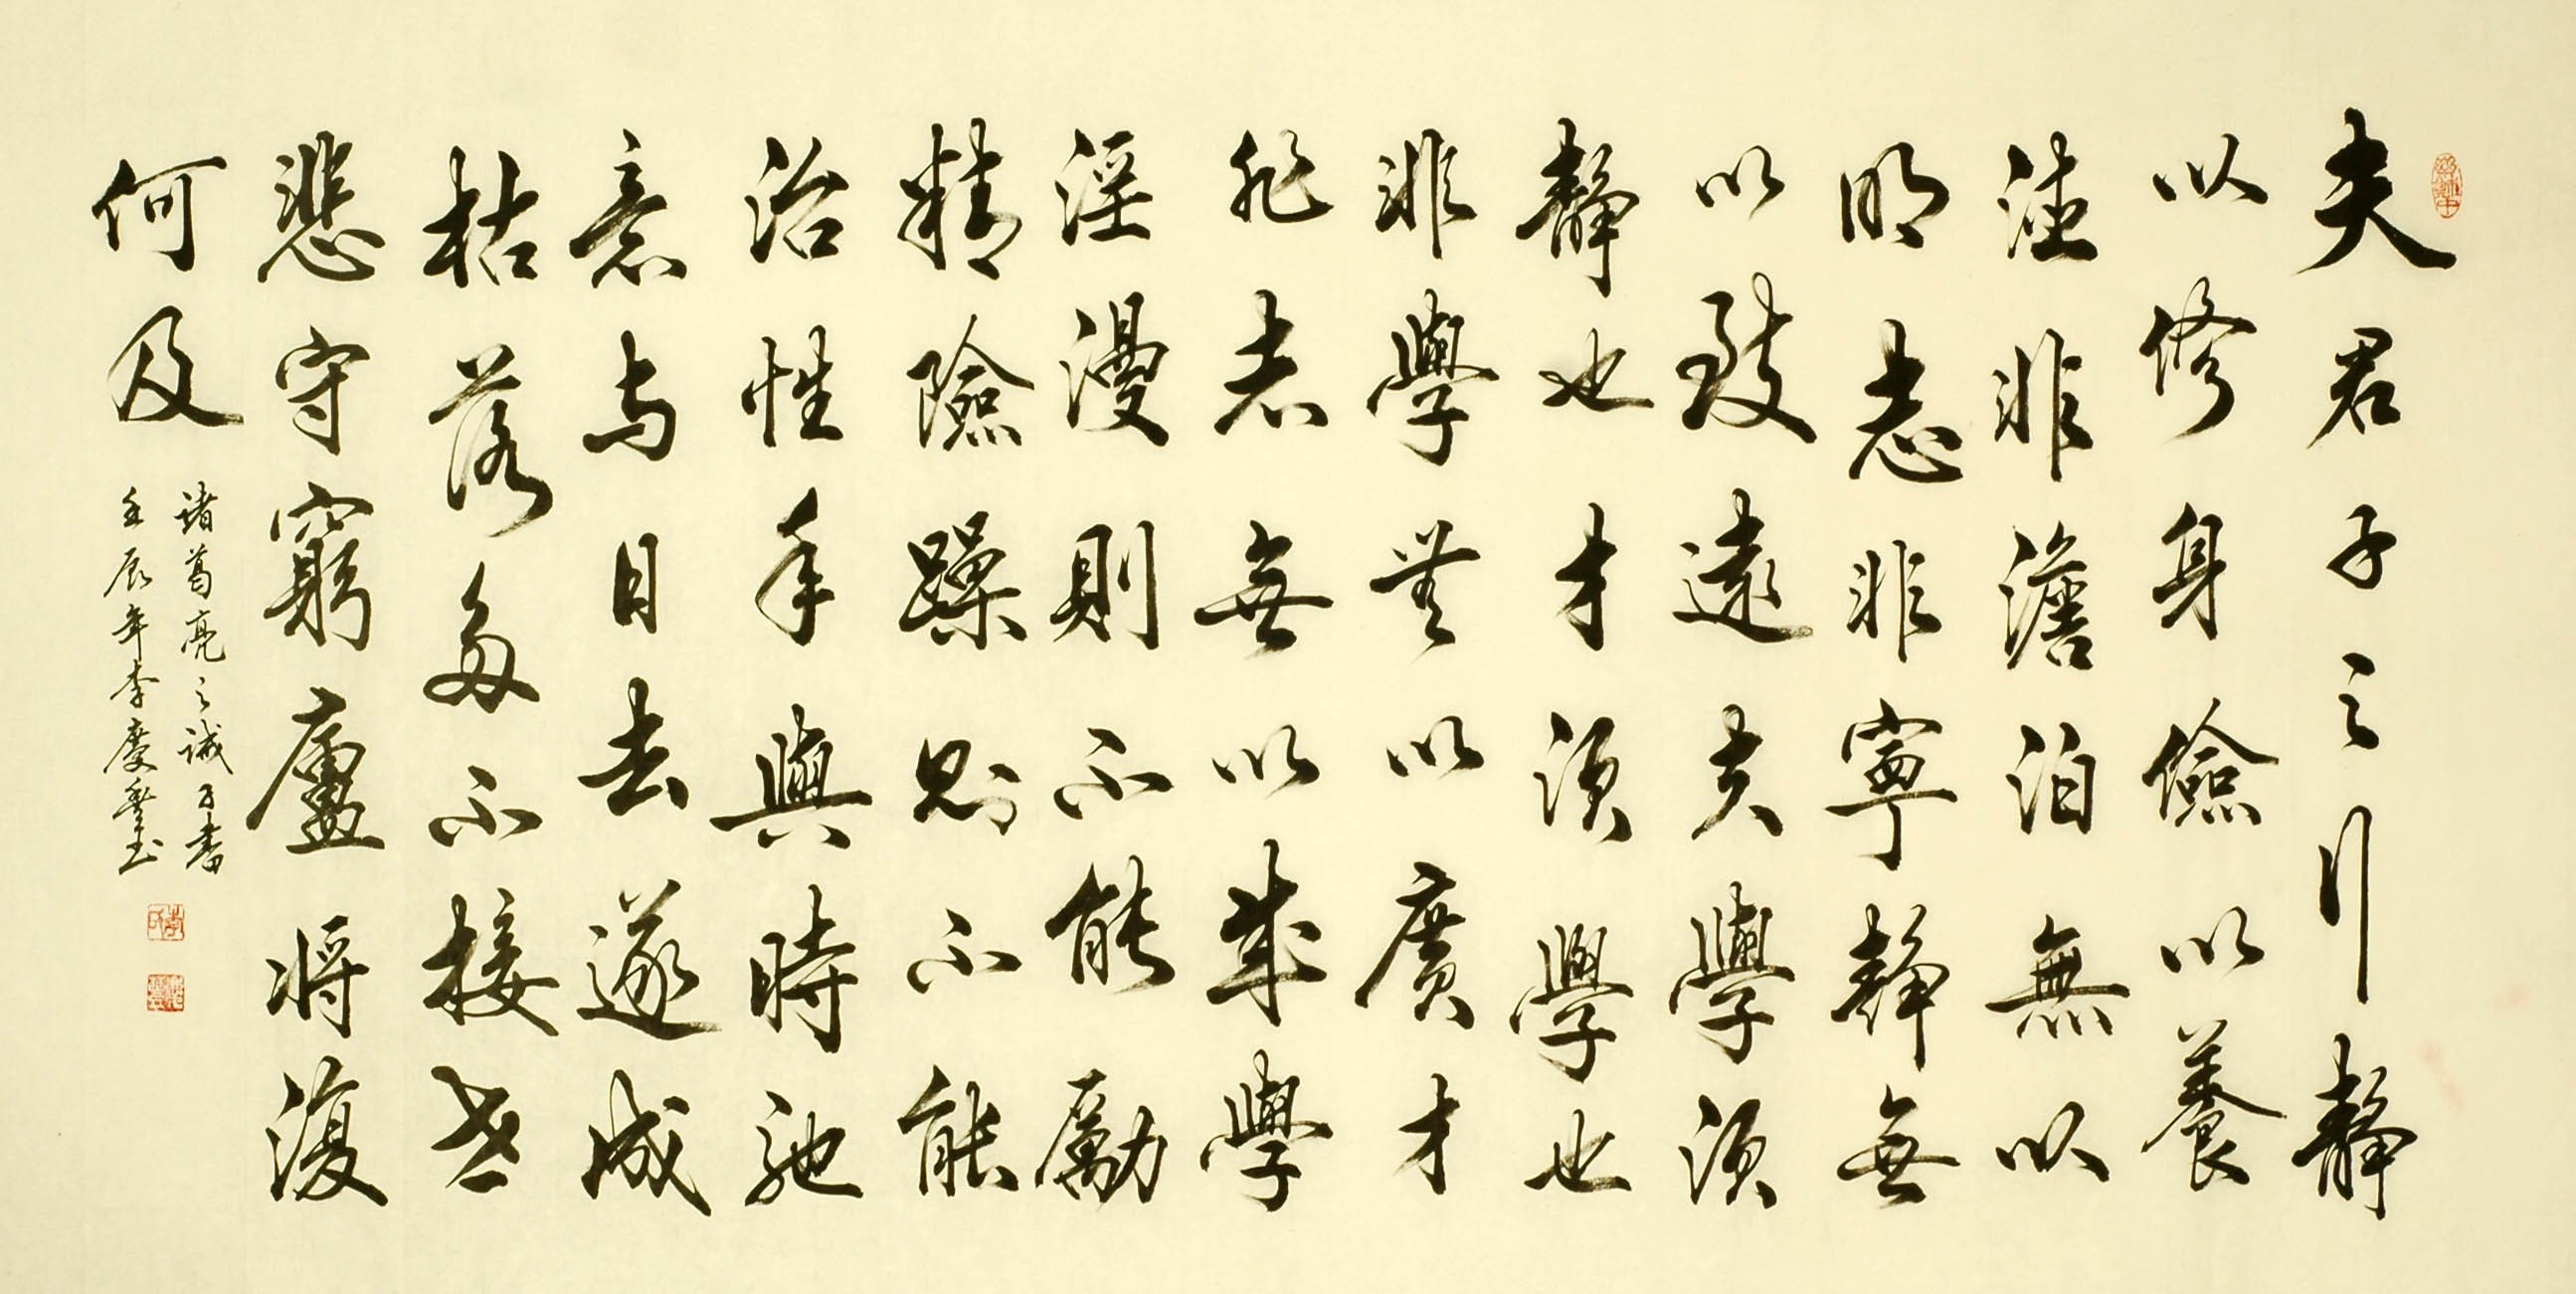 夫君子之行靜
以修身儉以養
德非澹泊無以
明志非寧靜無
以致遠夫學須
靜也才須學也
非學無以廣才
非志無以成學
淫漫則不能勵
精險躁則不能
治性年與時馳
意与日去遂成
枯落多不接世
悲守窮廬将復
何及
諸葛亮之誡子書
壬辰年李慶